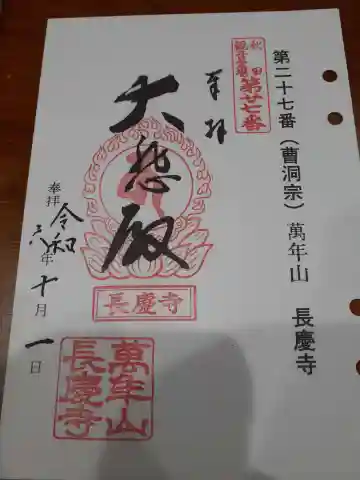 第二十七番（曹洞宗）萬年山　長慶寺
秋田
第廿七番
奉拝
大悲殿
長慶寺
奉拝
令和六年十月一日
萬年山
長慶寺